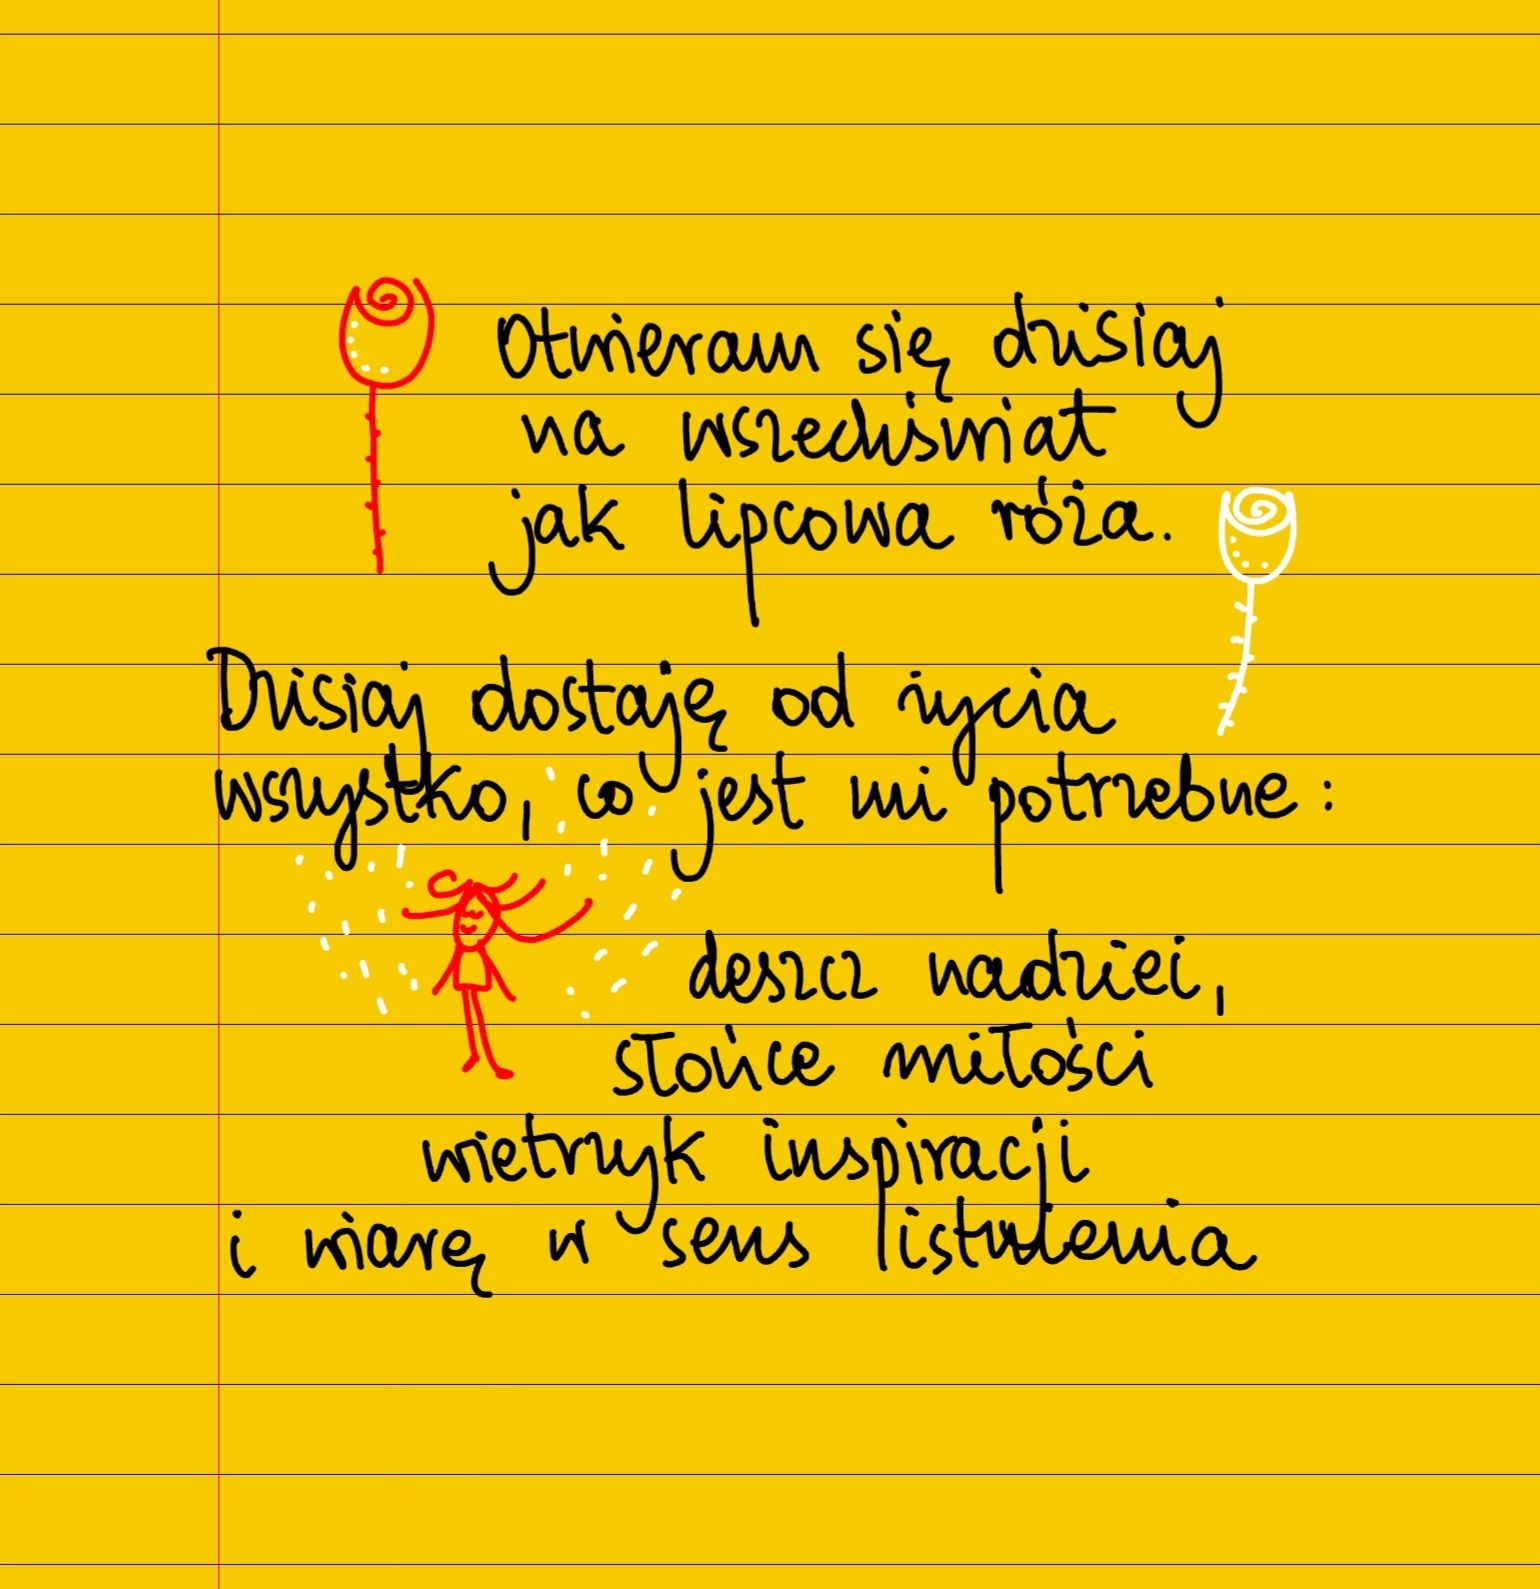 Otwieram się dzisiaj
na wszechświat
jak lipcowa róża.
Dzisiaj dostaję od życia
wszystko, co jest mi potrzebne:
deszcz nadziei,
słońce miłości
wietrzyk inspiracji
i wiarę w sens istnienia